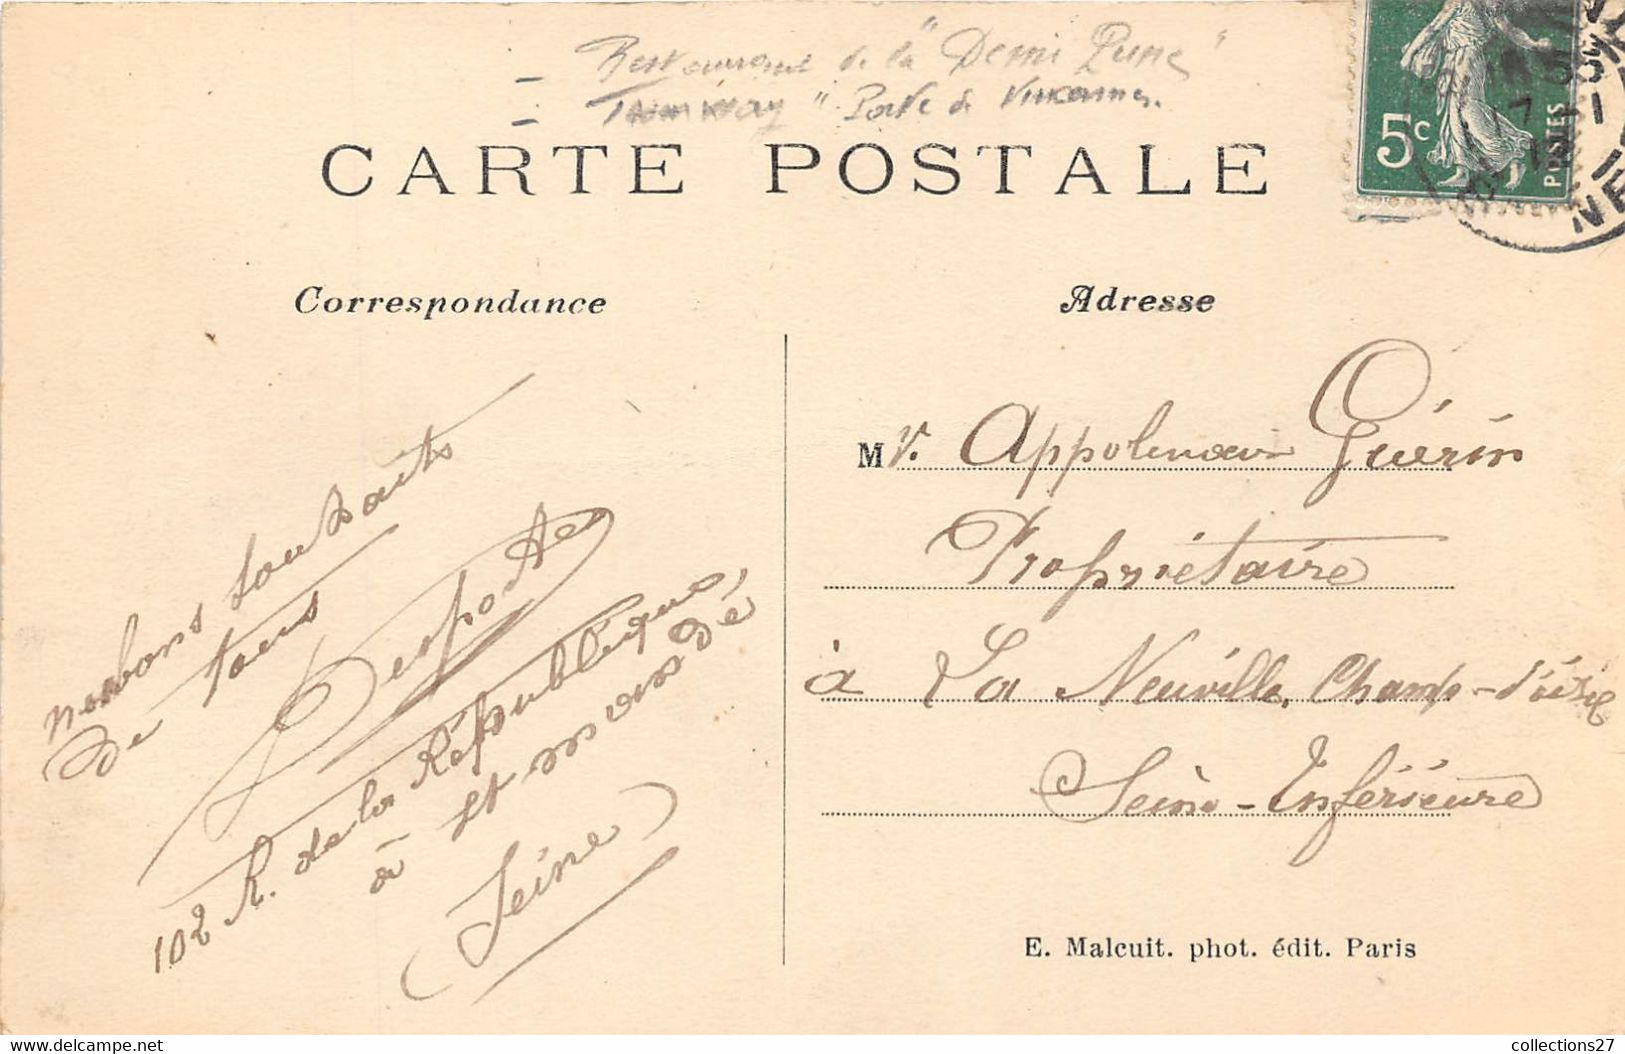 Restaurant de la "Demi Lune"
Tramway "Porte de Vincennes.
CARTE POSTALE
5c
POSTES
Correspondance
Adresse
nos bons souhaits
de tous
Desportes
102 R. de la République,
à St mandé
(Seine)
Mr. Appolinaire Guérin
Propriétaire
à La Neuville, Champ-d'oisel
Seine-Inférieure
E. Malcuit. phot. édit. Paris
collections27